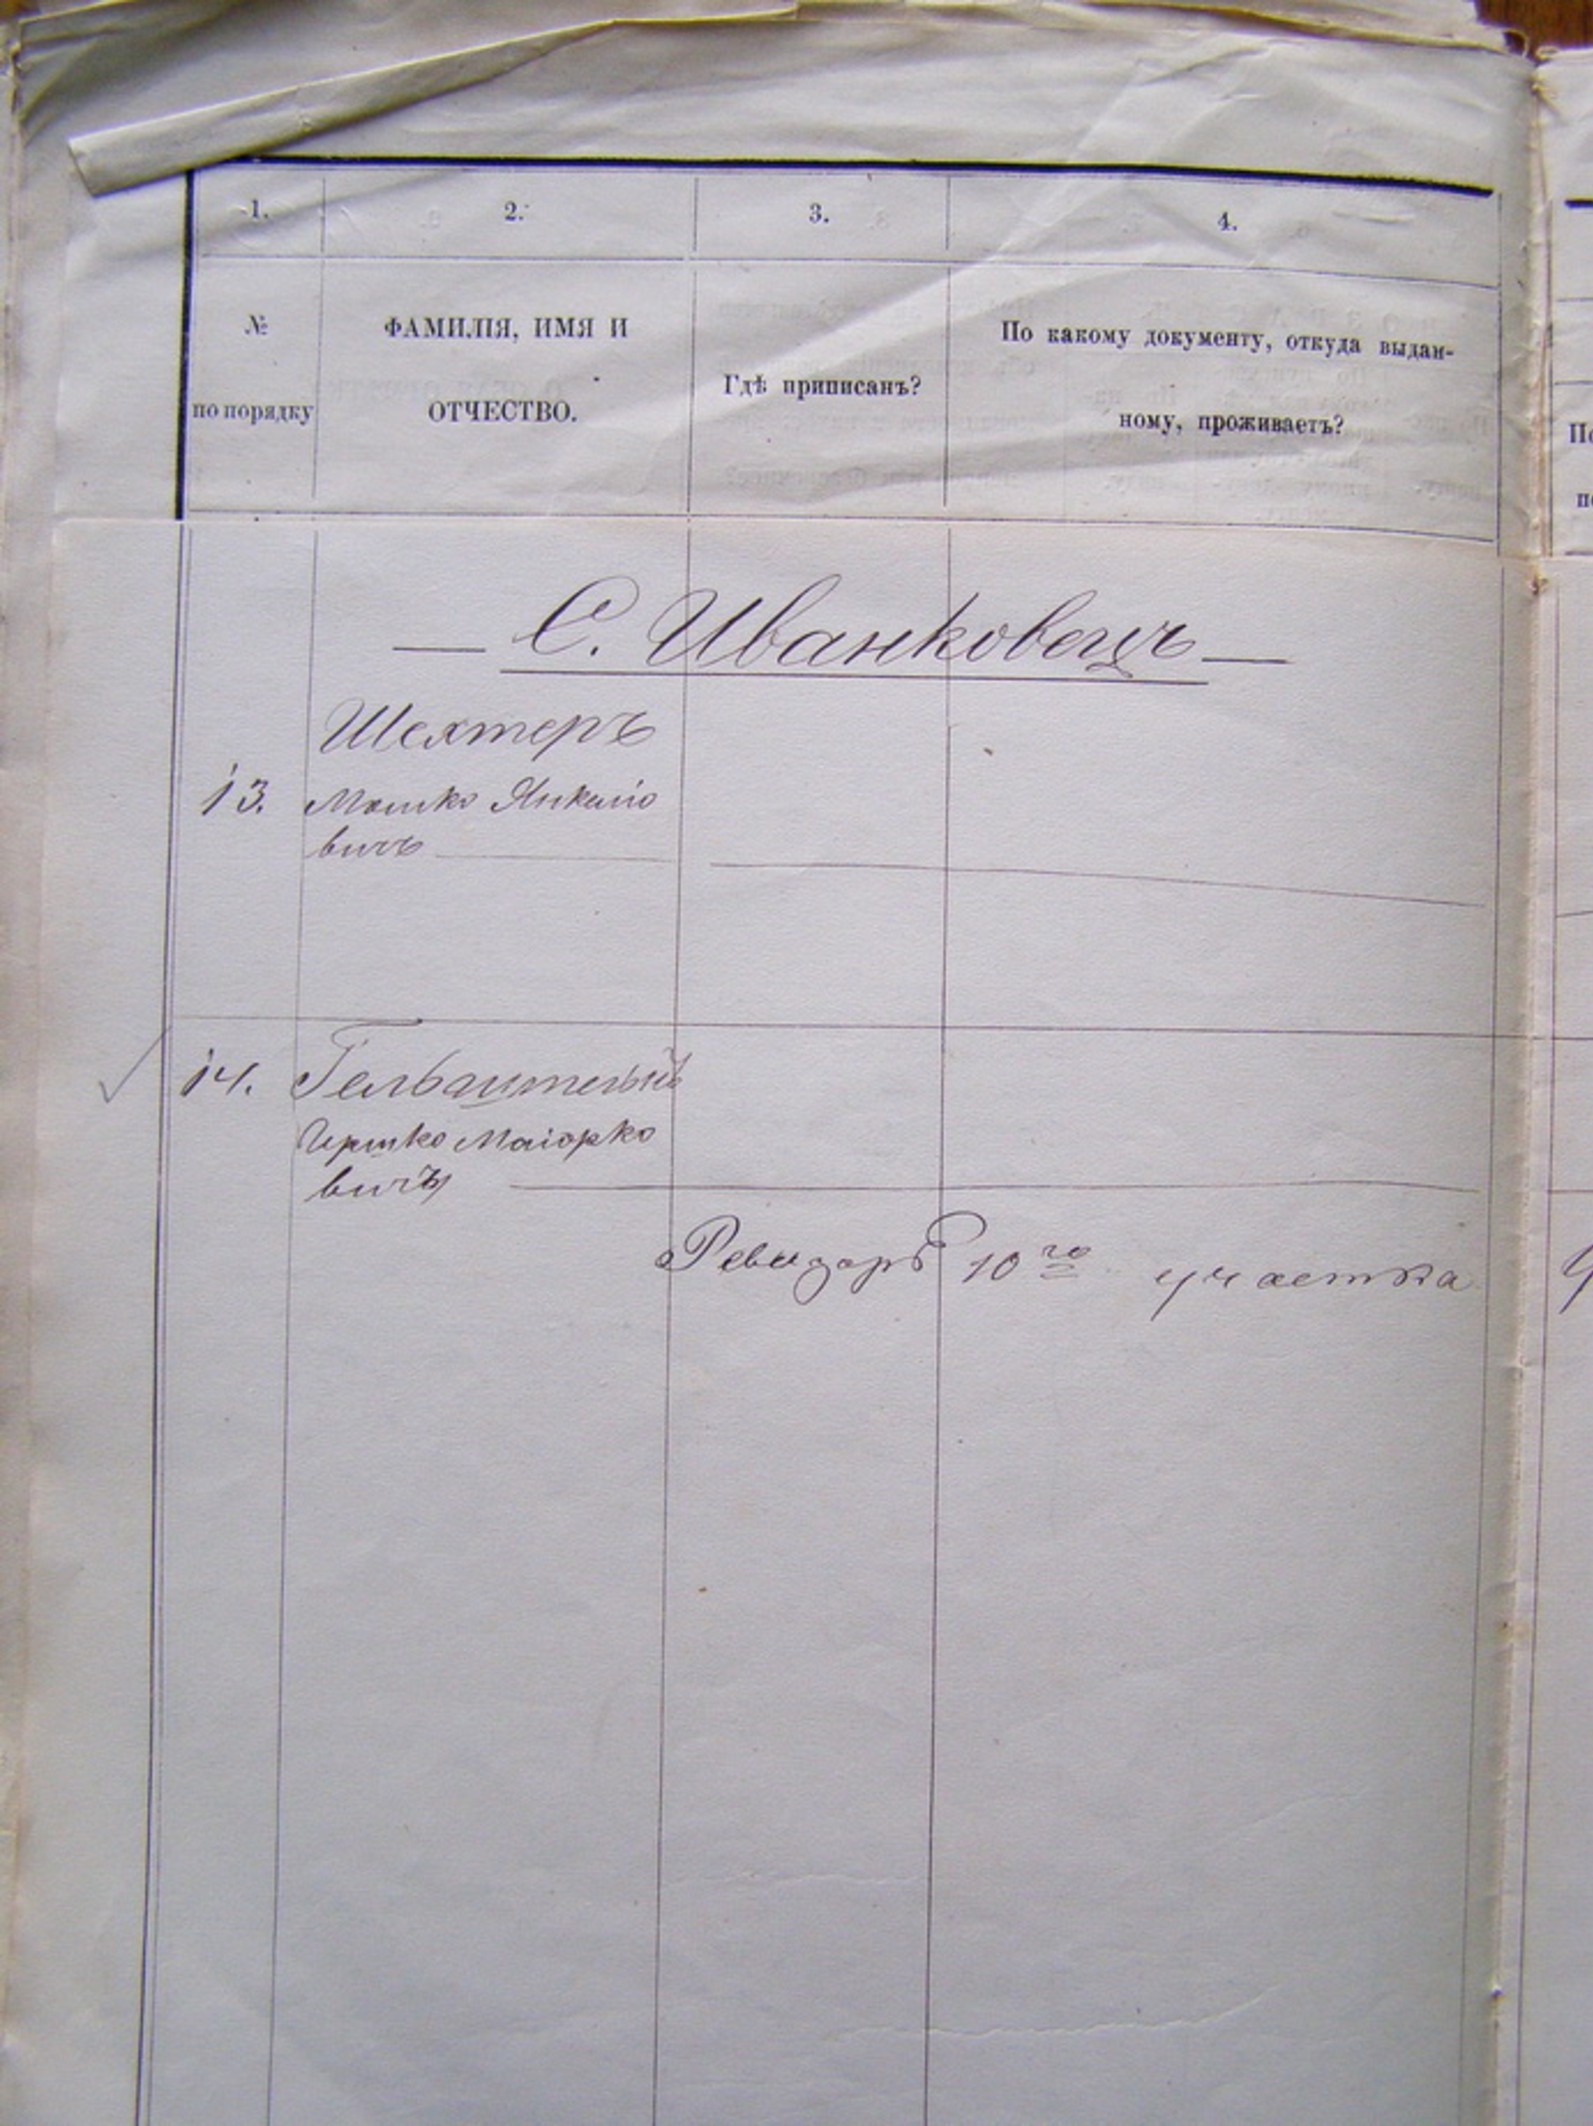 1. 2. 3. 4.
№
по порядку
ФАМИЛІЯ, ИМЯ И
ОТЧЕСТВО.
Гдѣ приписанъ?
По какому документу, откуда выдан-
ному, проживаетъ?
— С. Иванковецъ —
Шехтеръ
13. Мошко Янкеліо
вичъ
14. Гельбштейнъ
Гершко Маіорко
вичъ
Ревизоръ 10го участка